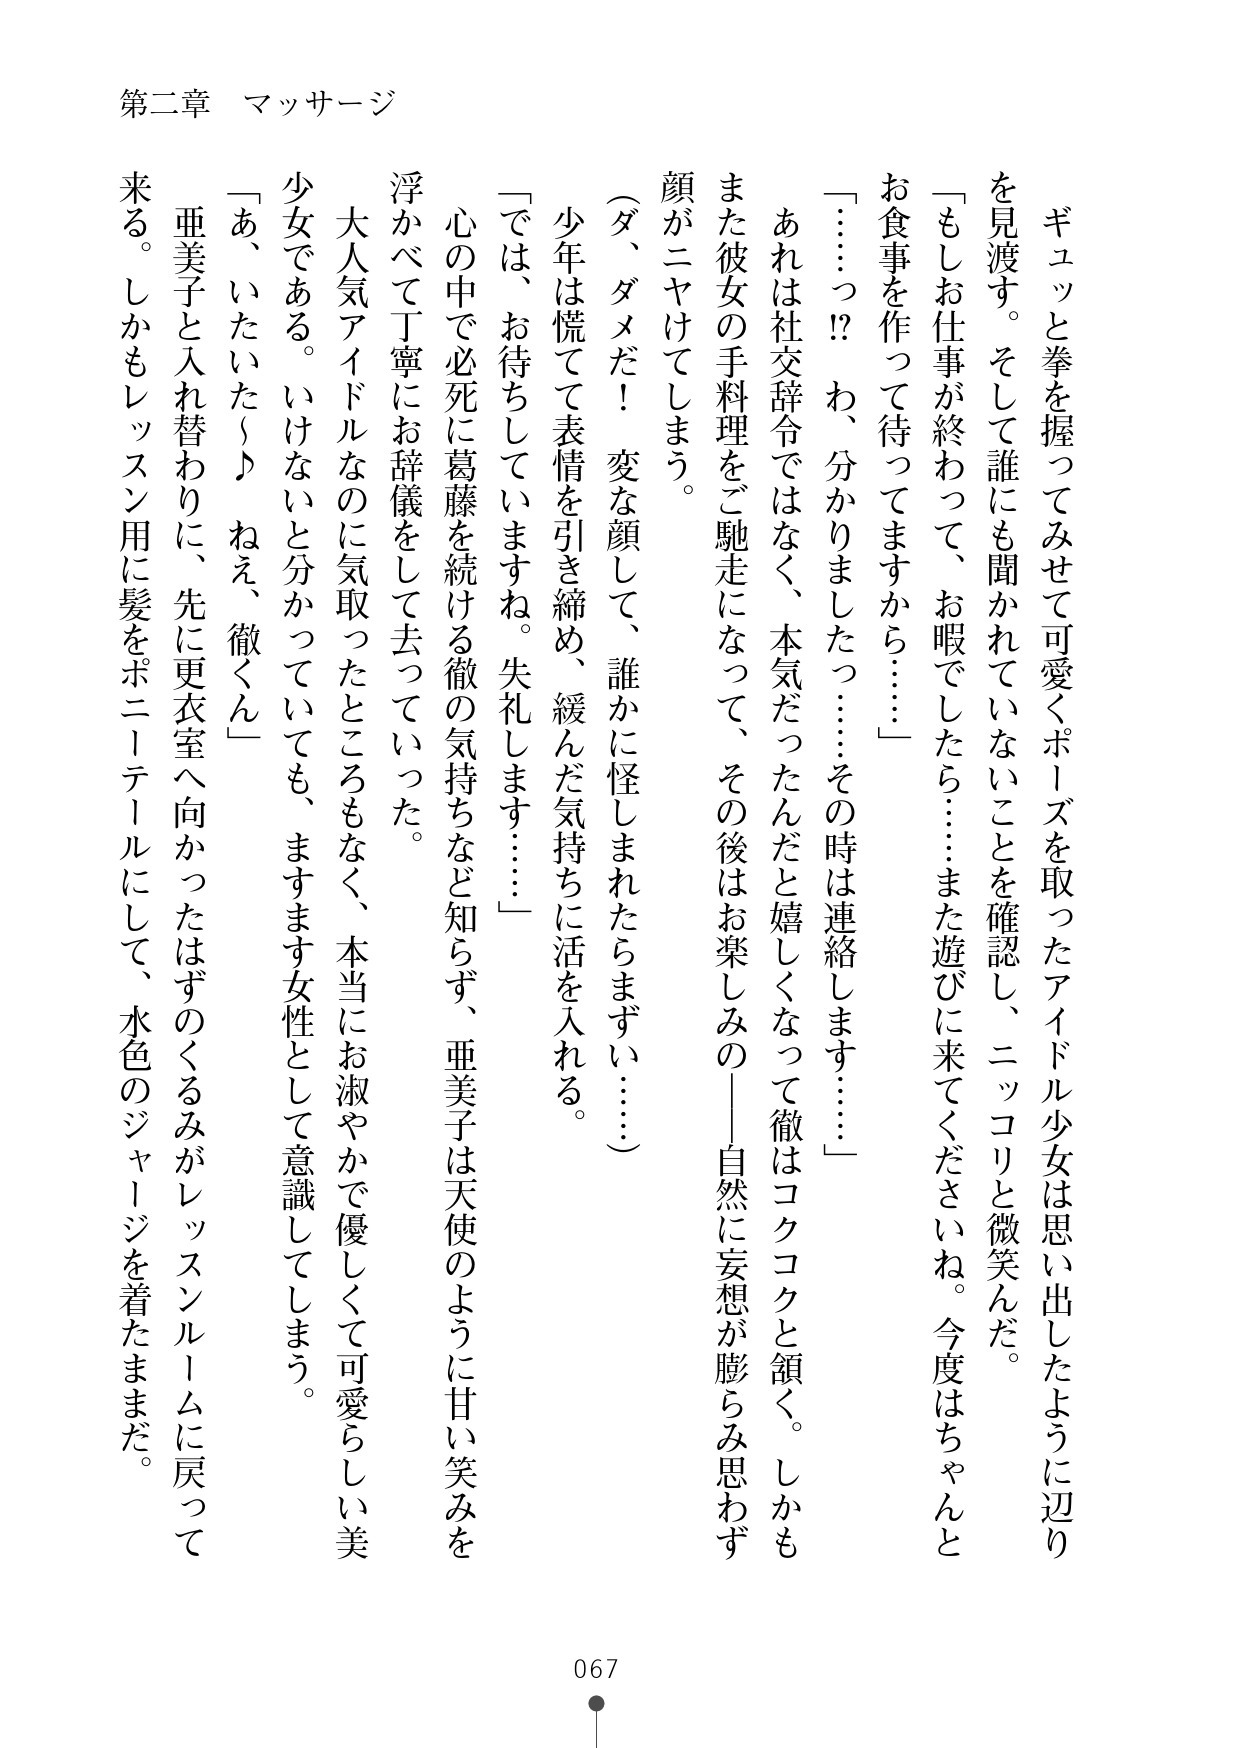 第二章　マッサージ
　ギュッと拳を握ってみせて可愛くポーズを取ったアイドル少女は思い出したように辺り
を見渡す。そして誰にも聞かれていないことを確認し、ニッコリと微笑んだ。
「もしお仕事が終わって、お暇でしたら……また遊びに来てくださいね。今度はちゃんと
お食事を作って待ってますから……」
「……っ!?　わ、分かりましたっ……その時は連絡します……」
　あれは社交辞令ではなく、本気だったんだと嬉しくなって徹はコクコクと頷く。しかも
また彼女の手料理をご馳走になって、その後はお楽しみの――自然に妄想が膨らみ思わず
顔がニヤけてしまう。
（ダ、ダメだ！　変な顔して、誰かに怪しまれたらまずい……）
　少年は慌てて表情を引き締め、緩んだ気持ちに活を入れる。
「では、お待ちしていますね。失礼します……」
　心の中で必死に葛藤を続ける徹の気持ちなど知らず、亜美子は天使のように甘い笑みを
浮かべて丁寧にお辞儀をして去っていった。
　大人気アイドルなのに気取ったところもなく、本当にお淑やかで優しくて可愛らしい美
少女である。いけないと分かっていても、ますます女性として意識してしまう。
「あ、いたいた～♪　ねえ、徹くん」
　亜美子と入れ替わりに、先に更衣室へ向かったはずのくるみがレッスンルームに戻って
来る。しかもレッスン用に髪をポニーテールにして、水色のジャージを着たままだ。
067